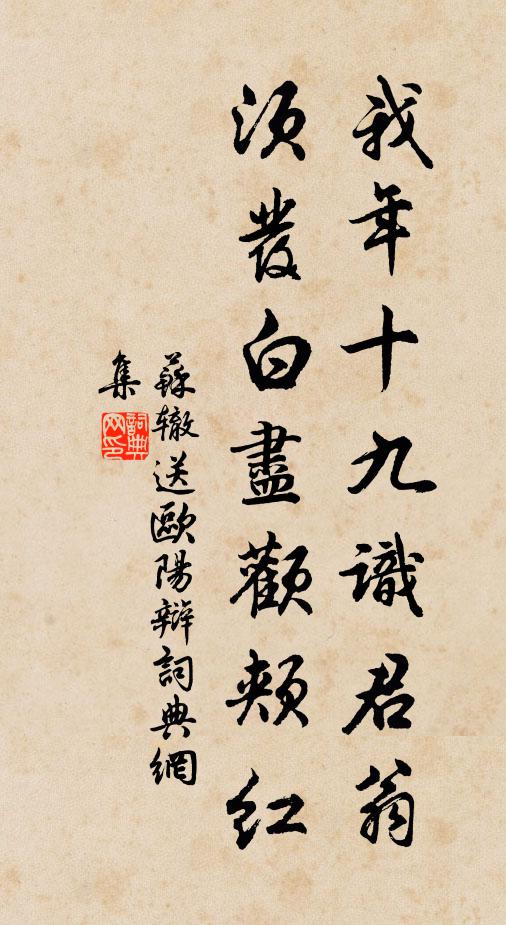 我年十九識君翁
須發白盡顴頰紅
蘇辙送歐陽辯詞典網
集
詞典網印